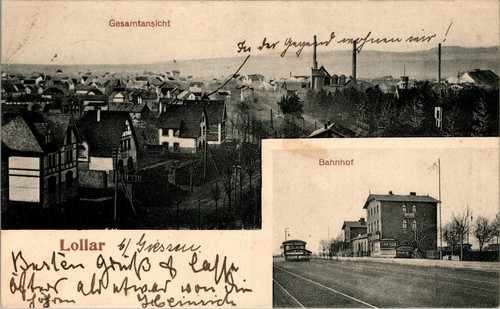 Gesamtansicht
In der Gegend wohnen wir!
Bahnhof
Lollar b/ Giessen.
Besten Gruß &
öfter als etwas von
Heinrich